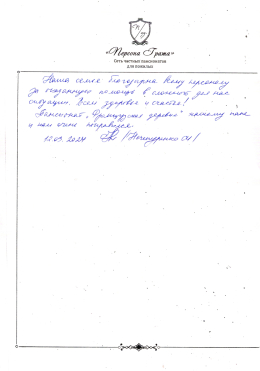 П Г
«Персона Грата»
Сеть частных пансионатов
для пожилых
Наша семья благодарна всему персоналу
за оказанную помощь в сложной для нас
ситуации. Всем здоровья и счастья!
Пансионат „Французская деревня" нашему папе
и нам очень понравился.
15.03.2024